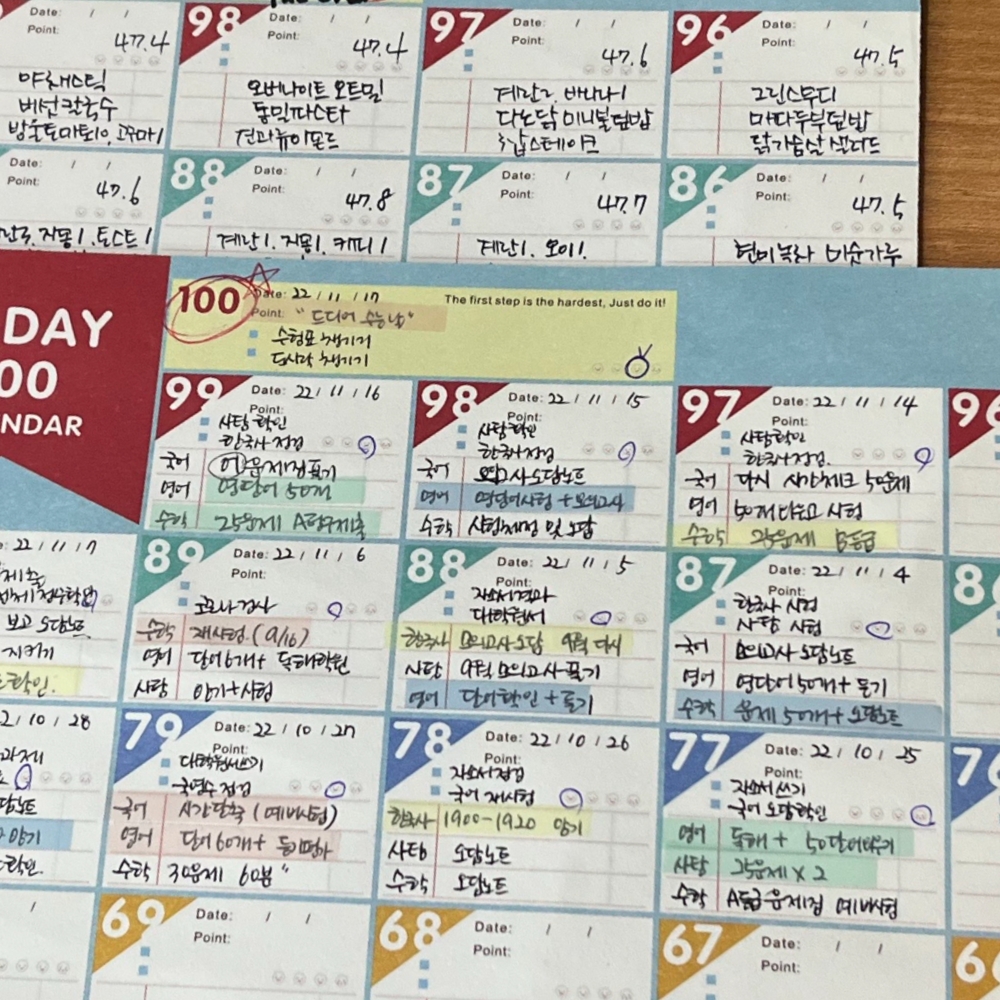 98 Date: / /
Point: 47.4
오버나이트 오트밀
통밀파스타
견과류 아몬드
97 Date: / /
Point: 47.6
계란2, 바나나1
다논닭 미니볼 덮밥
찹스테이크
96 Date: / /
Point: 47.5
그린스무디
마파두부덮밥
닭가슴살 샐러드
47.4
야채스틱
버섯칼국수
방울토마토10, 고구마1
Date: / /
Point: 47.6
자몽1, 토스트1
88 Date: / /
Point: 47.8
계란1, 자몽1, 커피1
87 Date: / /
Point: 47.7
계란1, 오이1
86 Date: / /
Point: 47.5
현미녹차
DAY
00
NDAR
100 Date: 22 / 11 / 17
The first step is the hardest, Just do it!
Point: "드디어 수능날"
수험표 챙기기
도시락 챙기기
99 Date: 22 / 11 / 16
Point:
사탐 확인
한국사 점검
국어
영어 영단어 50개
수학 25문제 A형
98 Date: 22 / 11 / 15
Point:
사탐 확인
한국사 점검
국어 모의고사 오답노트
영어 영단어시험 + 모의고사
수학 시험채점 및 오답
97 Date: 22 / 11 / 14
Point:
사탐 확인
한국사 점검.
국어 다시 시간체크 45문제
영어 시험
수학 25문제 B등급
96
22 / 11 / 7
89 Date: 22 / 11 / 6
Point:
코로나 검사
수학 재시험. (9/16)
영어 단어 6개 + 독해학원
사탐 암기+시험
88 Date: 22 / 11 / 5
Point:
자소서
대학원서
한국사 모의고사 오답 9월 다시
사탐 9월 모의고사 풀기
영어 단어확인 + 듣기
87 Date: 22 / 11 / 4
Point:
한국사 시험
사탐 시험
국어 모의고사 오답노트
영어 영단어 50개 + 듣기
수학 문제 50개 + 오답노트
지키기
2 / 10 / 28
79 Date: 22 / 10 / 27
Point:
대학원서쓰기
국영수 점검
국어 시간단축 (예비시험)
영어 단어 60개 + 듣기평가
수학 30문제 60분"
78 Date: 22 / 10 / 26
Point:
자소서 점검
국어 재시험
한국사 1900-1920 암기
사탐 오답노트
수학 오답노트
77 Date: 22 / 10 / 25
Point:
자소서 쓰기
국어 오답확인
영어 독해 + 50단어 외우기
사탐 25문제 X 2
수학 A등급 문제집 예비시험
69 Date: / /
Point:
68 Date: / /
Point:
67 Date: / /
Point: